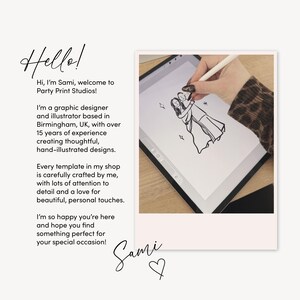 Hello!
Hi, I'm Sami, welcome to
Party Print Studios!
I'm a graphic designer
and illustrator based in
Birmingham, UK, with over
15 years of experience
creating thoughtful,
hand-illustrated designs.
Every template in my shop
is carefully crafted by me,
with lots of attention to
detail and a love for
beautiful, personal touches.
I'm so happy you're here
and hope you find
something perfect for
your special occasion!
Sami